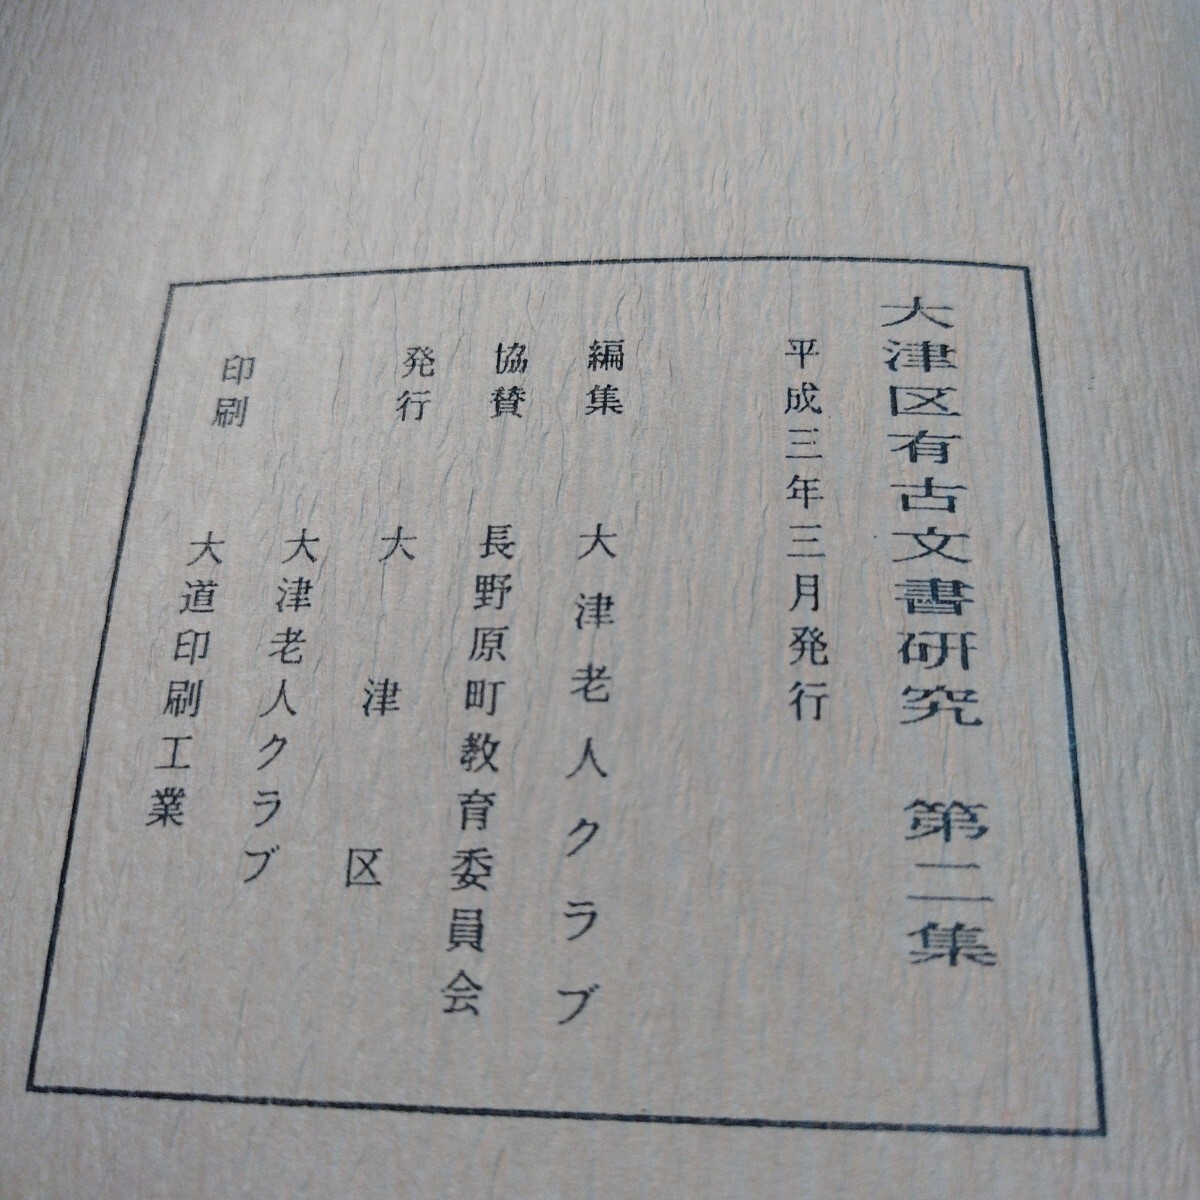 大津区有古文書研究　第二集
平成三年三月発行
編集　大津老人クラブ
協賛　長野原町教育委員会
発行　大津区
大津老人クラブ
印刷　大道印刷工業